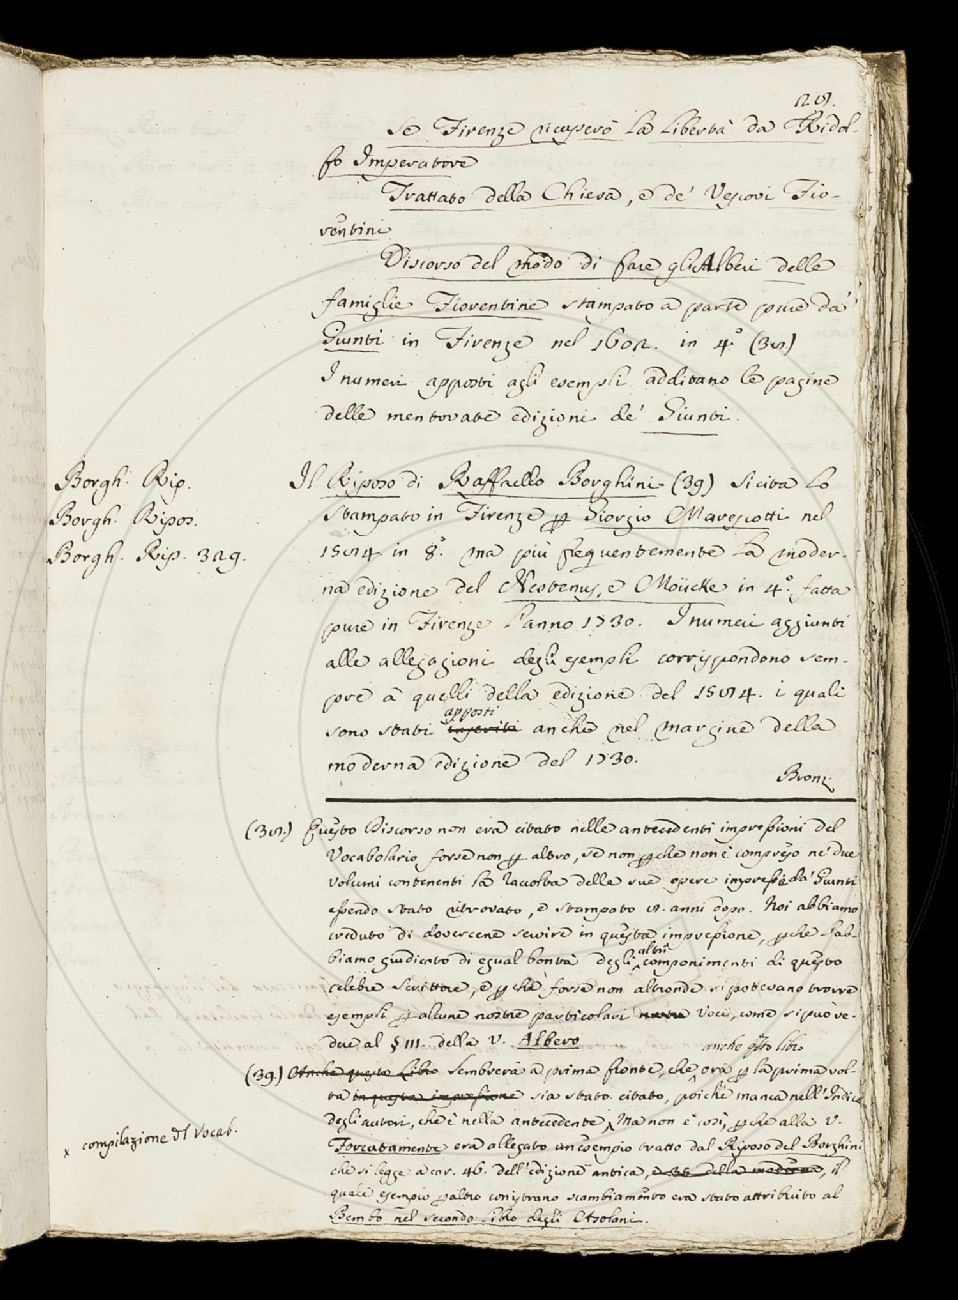 28.
Se Firenze ricuperò la libertà da Ridol-
fo Imperatore
Trattato della Chiesa, e de' Vescovi Fio-
rentini
Discorso del modo di fare gli Alberi delle
famiglie Fiorentine stampato a parte pure da'
Giunti in Firenze nel 1602. in 4.º (38)
I numeri apposti agli esempli additano le pagine
delle mentovate edizioni de' Giunti.
Borgh. Rip.
Borgh. Ripos.
Borgh. Rip. 329.
Il Riposo di Raffaello Borghini (39) Si cita lo
stampato in Firenze p Giorgio Marescotti nel
1584 in 8.º ma più frequentemente la moder-
na edizione del Nestenus, e Moücke in 4.º fatta
pure in Firenze l'anno 1730. I numeri aggiunti
alle allegazioni degli esempli corrispondono sem-
pre a quelli della edizione del 1584. i quali
sono stati inseriti apposti anche nel margine della
moderna edizione del 1730.
Bronz.
(38.) Questo Discorso non era citato nelle antecedenti impressioni del
Vocabolario forse non p altro, se non pche non è compreso ne' due
volumi contenenti la raccolta delle sue opere impressa da' Giunti
essendo stato ritrovato, e stampato 18. anni dopo. Noi abbiamo
creduto di dovercene servire in questa impressione, pche l'ab-
biamo giudicato di egual bontà degli altri componimenti di questo
celebre Scrittore, e p che forse non altronde si potevano trovare
esempli p alcune nostre particolari voci, come si può ve-
dere al § III. della V. Albero
(39.) Anche questo Libro Sembrerà a prima fronte, che anche qsto libro ora p la prima vol-
ta in questa impressione sia stato citato, poichè manca nell'Indice
degli autori, che è nella antecedente x Ma non è così, pche alla V.
x compilazione dl Vocab.
Forzutamente era allegato un esempio tratto dal Riposo del Borghini
che si legge a car. 46. dell'edizione antica, e 36 della moderna, il
quale esempio p altro con istrano scambiamento era stato attribuito al
Bembo nel secondo libro degli Asolani.